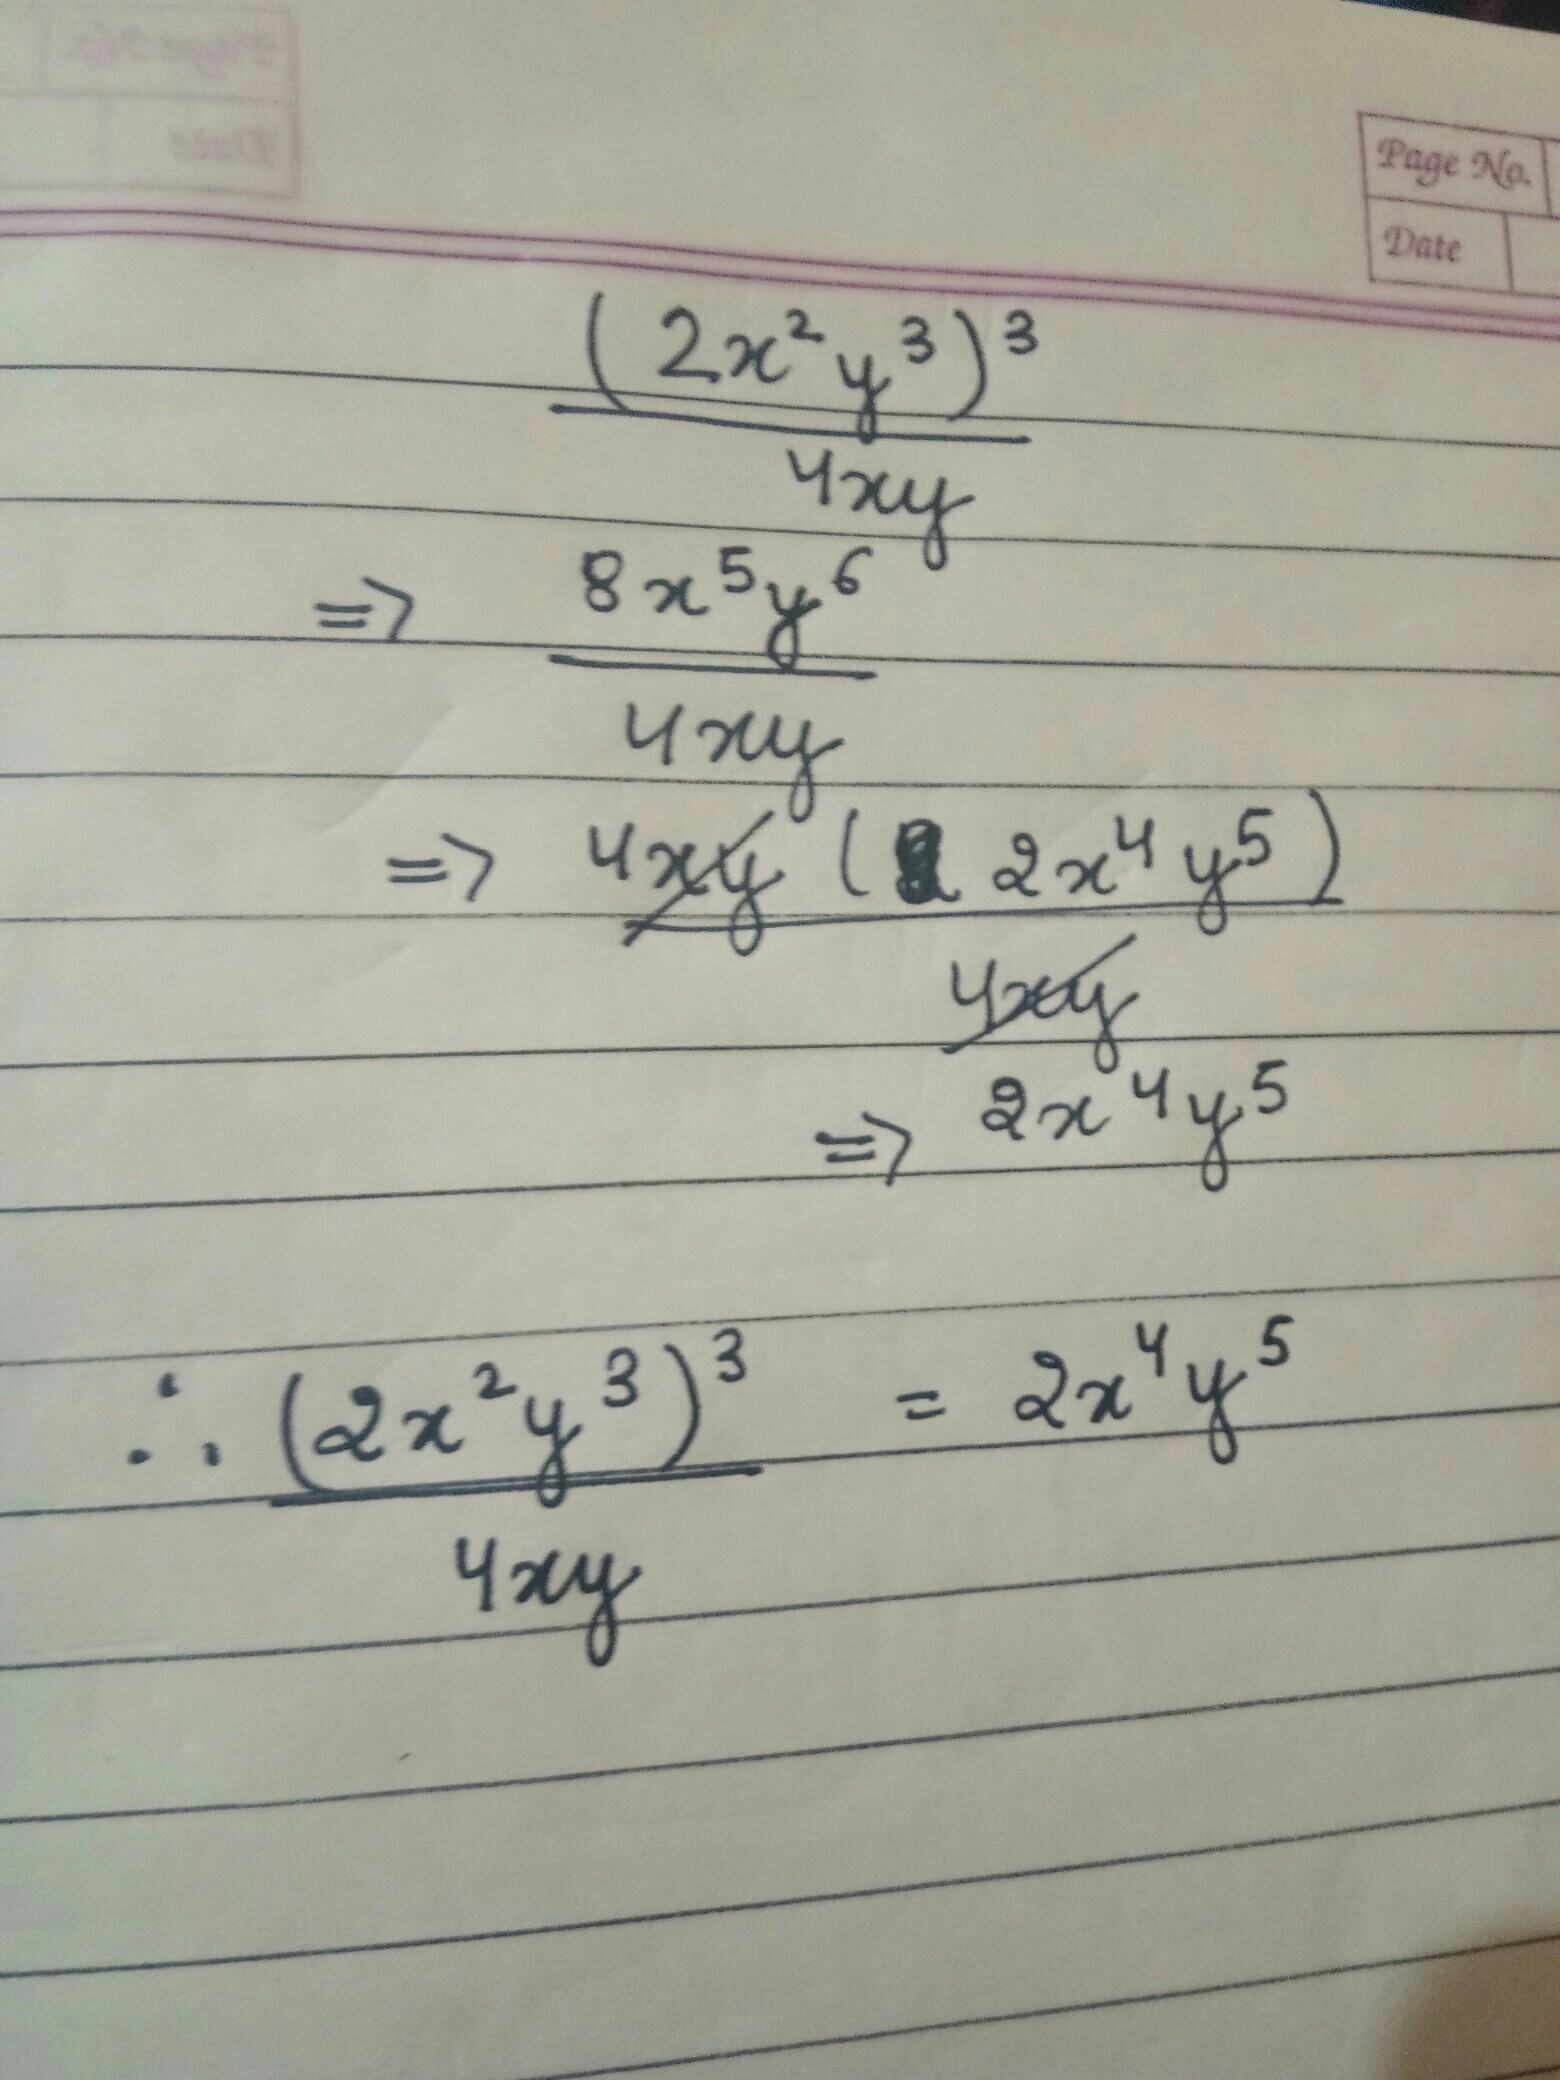 Page No.
Date
(2x²y³)³
4xy
=> 8x⁵y⁶
4xy
=> 4xy (2x⁴y⁵)
4xy
=> 2x⁴y⁵
∴ (2x²y³)³ = 2x⁴y⁵
4xy